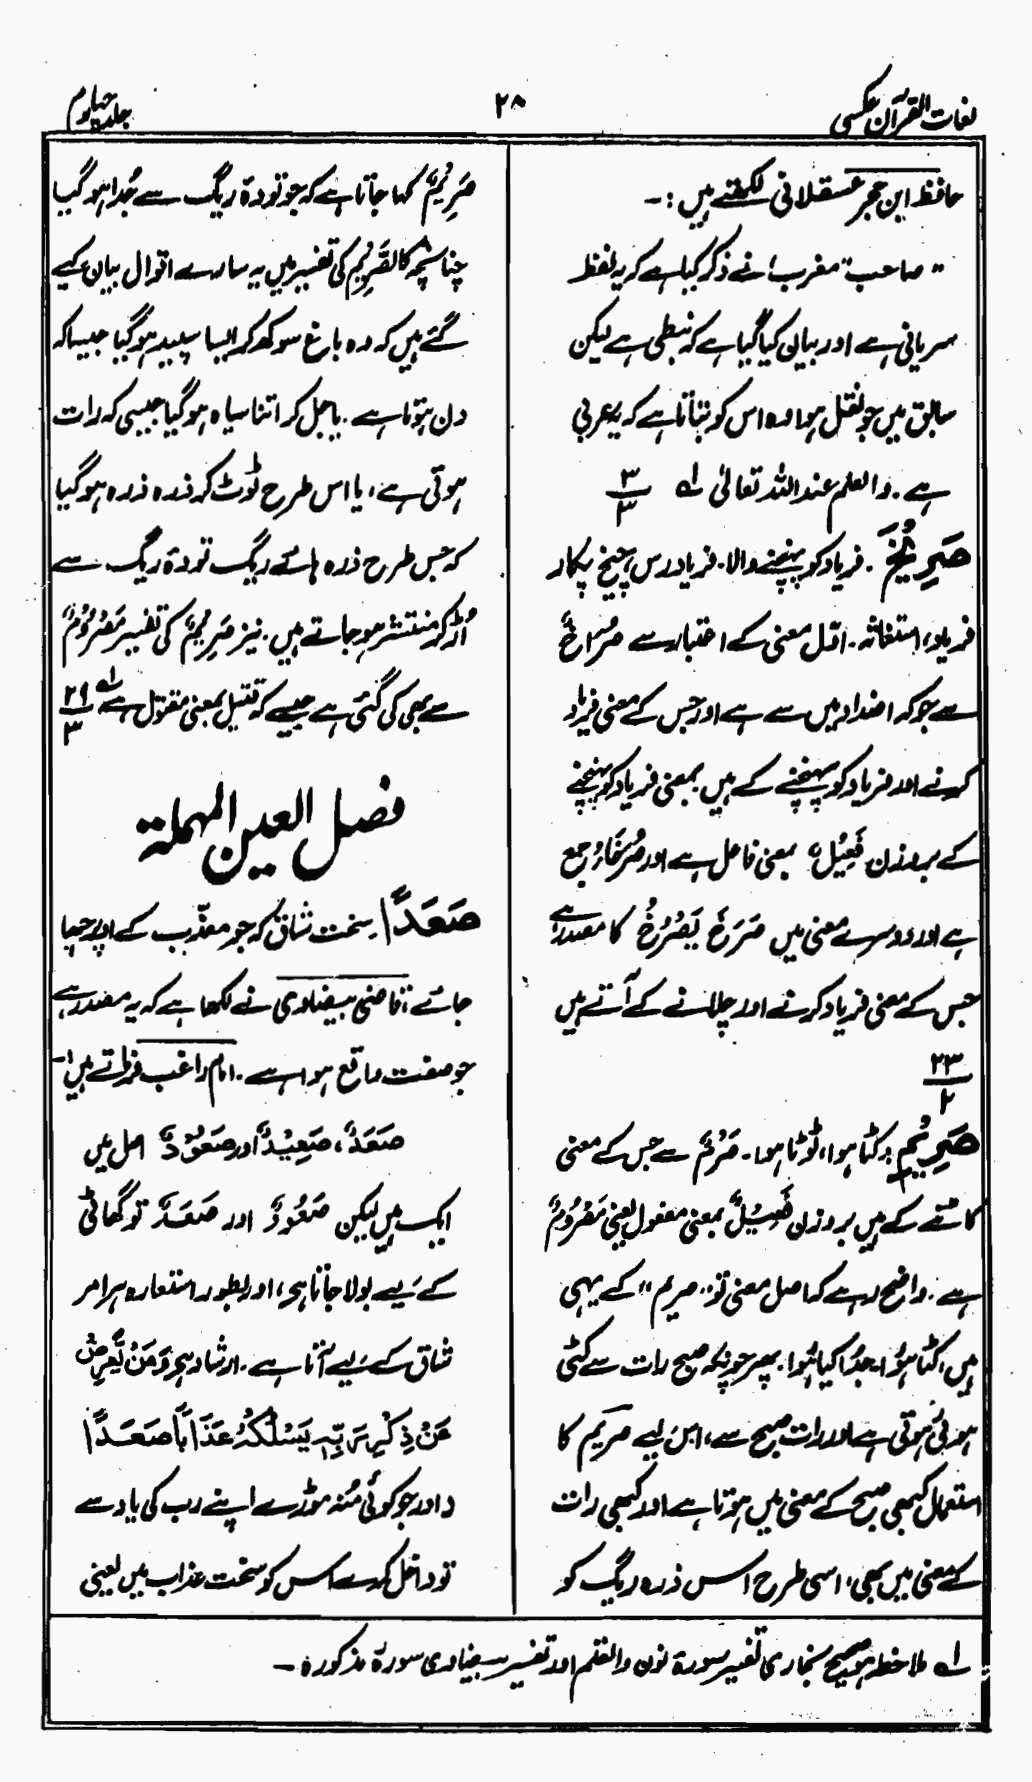 لغات القرآن عکسی
۲۸
جلد چہارم
حافظ ابن حجر عسقلانی لکھتے ہیں :۔
" صاحب "مغرب" نے ذکر کیا ہے کہ یہ لفظ
سریانی ہے اور بیان کیا گیا ہے کہ نبطی ہے لیکن
سابق میں جو نقل ہوا وہ اس کو بتاتا ہے کہ یہ عربی
ہے۔ والعلم عند اللہ تعالیٰ لہ ۳/۳
صَرِيْخَ ۔ فریاد کو پہنچنے والا۔ فریاد رس، چیخ پکار
فریاد، استغاثہ۔ اول معنی کے اعتبار سے صُرَاخٌ
سے جو کہ اضداد میں سے ہے اور جس کے معنی فریاد
کرنے اور فریاد کو پہنچنے کے ہیں۔ بمعنی فریاد کو پہنچنے
کے بروزن فَعِيْلٌ بمعنی فاعل ہے اور صُرَخَاءُ جمع
ہے اور دوسرے معنی میں صَرَخَ يَصْرُخُ کا مصدر ہے
جس کے معنی فریاد کرنے اور چلانے کے آتے ہیں
۲۳/۲
صَرِيْمِ ۔ کٹا ہوا، ٹوٹا ہوا۔ صَرْمٌ سے جس کے معنی
کاٹنے کے ہیں بروزن فَعِيْلٌ بمعنی مفعول یعنی مَصْرُوْمٌ
ہے۔ واضح رہے کہ اصل معنی تو "صریم" کے یہی
ہیں، کٹا ہوا، جدا کیا ہوا۔ پھر چونکہ صبح رات سے کٹی
ہوئی ہوتی ہے اور رات صبح سے، اس لیے صریم کا
استعمال کبھی صبح کے معنی میں ہوتا ہے اور کبھی رات
کے معنی میں بھی، اسی طرح اس ذرہ ریگ کو
صَرِيْمٌ کہا جاتا ہے کہ جو تودۂ ریگ سے جُدا ہو گیا
چنانچہ کَالصَّرِيْمِ کی تفسیر میں یہ سارے اقوال بیان کیے
گئے ہیں کہ وہ باغ سوکھ کر ایسا سپید ہو گیا جیسا کہ
دن ہوتا ہے۔ یا جل کر اتنا سیاہ ہو گیا جیسی کہ رات
ہوتی ہے، یا اس طرح ٹوٹ کر ذرہ ذرہ ہو گیا
کہ جس طرح ذرہ ہائے ریگ تودۂ ریگ سے
اُڑ کر منتشر ہو جاتے ہیں۔ نیز صَرِيْمٌ کی تفسیر مَصْرُوْمٌ
سے بھی کی گئی ہے جیسے کہ قتیل بمعنی مقتول ہے لہ ۲۹/۳
فصل العین المہملة
صَعَدًا ۔ سخت شاق کہ جو معذّب کے اوپر چھا
جائے، قاضی بیضاوی نے لکھا ہے کہ یہ مصدر ہے
جو صفت واقع ہوا ہے۔ امام راغب فرماتے ہیں:۔
صَعَدٌ، صَعِيْدٌ اور صَعُوْدٌ اصل میں
ایک ہیں لیکن صَعُوْدٌ اور صَعَدٌ تو گھاٹی
کے لیے بولا جاتا ہے، اور بطور استعارہ ہر امر
شاق کے لیے آتا ہے۔ ارشاد ہے وَمَنْ يُّعْرِضْ
عَنْ ذِكْرِ رَبِّهٖ يَسْلُكْهُ عَذَابًا صَعَدًا
(اور جو کوئی منہ موڑے اپنے رب کی یاد سے
تو داخل کرے اس کو سخت عذاب میں یعنی
لہ ملاحظہ ہو صحیح بخاری تفسیر سورۃ نون والقلم اور تفسیر بیضاوی سورۃ مذکورہ۔